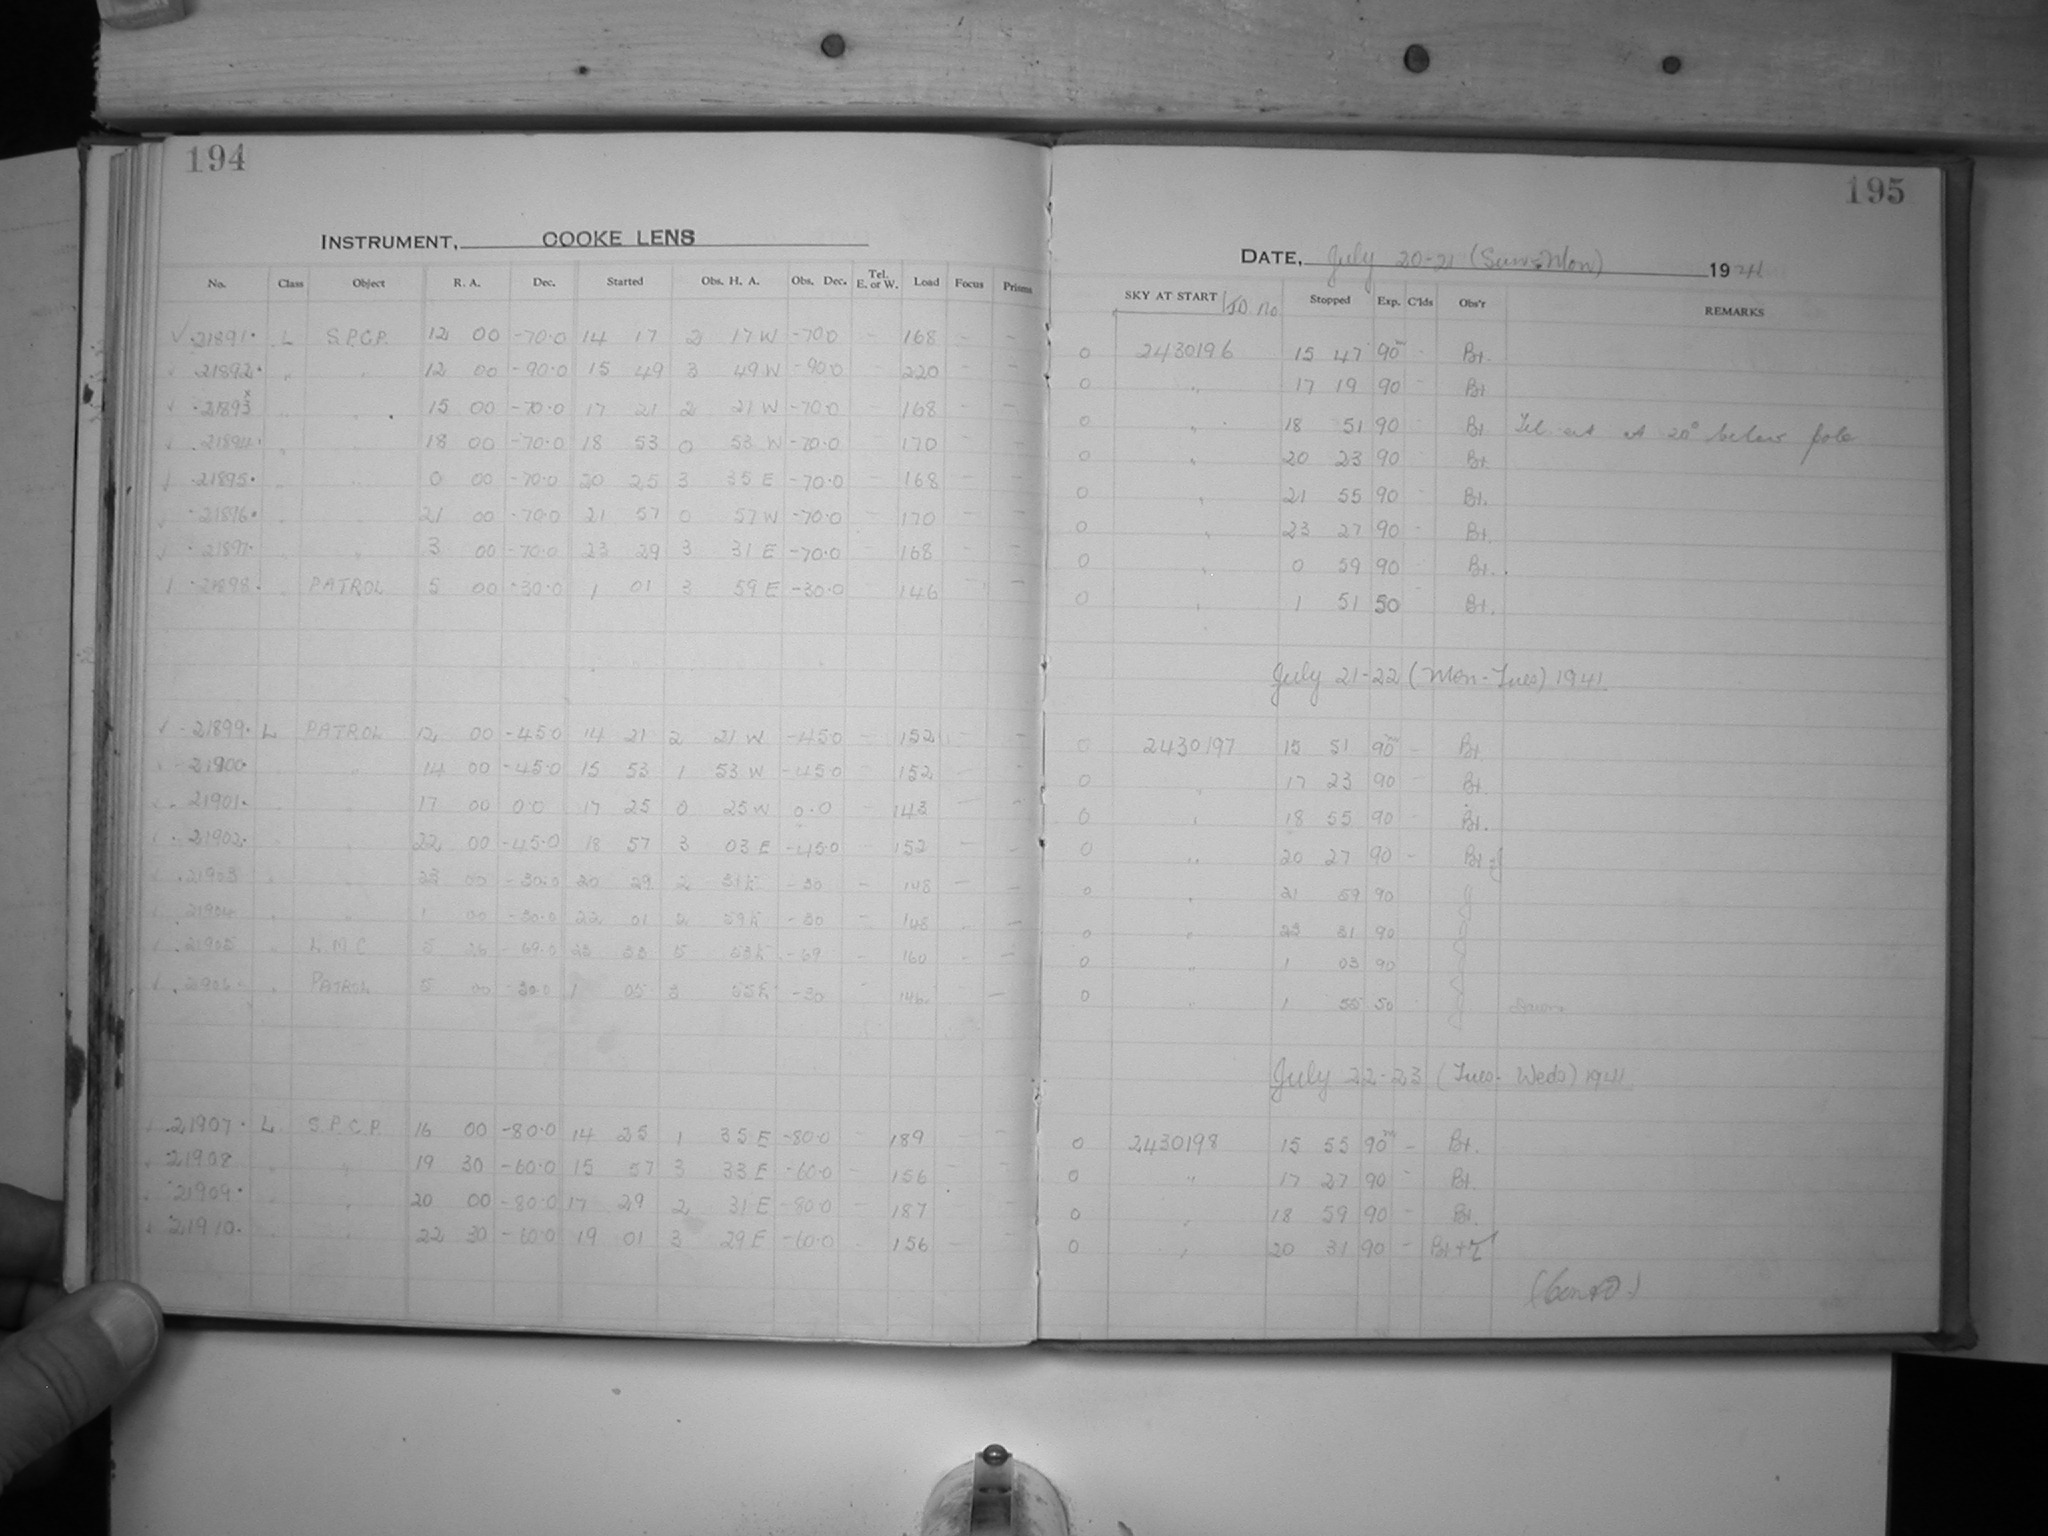 194
INSTRUMENT, COOKE LENS
No. Class Object R. A. Dec. Started Obs. H. A. Obs. Dec. Tel. E. or W. Load Focus Prisms
✓ 21891. L S.P.C.P. 12 00 -70.0 14 17 2 17 W -70.0 - 168 - -
✓ 21892. " " 12 00 -90.0 15 49 3 49 W -90.0 - 220 - -
✓ 21893 x " " 15 00 -70.0 17 21 2 21 W -70.0 - 168 - -
✓ 21894. " " 18 00 -70.0 18 53 0 53 W -70.0 - 170 - -
✓ 21895. " " 0 00 -70.0 20 25 3 35 E -70.0 - 168 - -
✓ 21896. " " 21 00 -70.0 21 57 0 57 W -70.0 - 170 - -
✓ 21897. " " 3 00 -70.0 23 29 3 31 E -70.0 - 168 - -
✓ 21898. " PATROL 5 00 -30.0 1 01 3 59 E -30.0 - 146 - -
✓ 21899. L PATROL 12 00 -45.0 14 21 2 21 W -45.0 - 152 - -
✓ 21900. " " 14 00 -45.0 15 53 1 53 W -45.0 - 152 - -
✓ 21901. " " 17 00 0.0 17 25 0 25 W 0.0 - 143 - -
✓ 21902. " " 22 00 -45.0 18 57 3 03 E -45.0 - 152 - -
✓ 21903 " " 23 00 -30.0 20 29 2 31 E -30 - 148 - -
✓ 21904 " " 1 00 -30.0 22 01 2 59 E -30 - 148 - -
✓ 21905 " L.M.C. 5 26 -69.0 23 33 5 53 E -69 - 160 - -
✓ 21906 " PATROL 5 00 -30.0 1 05 3 55 E -30 - 146 -
✓ 21907. L S.P.C.P. 16 00 -80.0 14 25 1 35 E -80.0 - 189 - -
✓ 21908 " " 19 30 -60.0 15 57 3 33 E -60.0 - 156 - -
✓ 21909. " " 20 00 -80.0 17 29 2 31 E -80.0 - 187 - -
✓ 21910. " " 22 30 -60.0 19 01 3 29 E -60.0 - 156 - -
195
DATE, July 20-21 (Sun-Mon) 1941
SKY AT START J.D. no Stopped Exp. C'lds Obs'r REMARKS
0 2430196 15 47 90m - Bt.
0 " 17 19 90 Bt
0 " 18 51 90 - Bt Tel set at 20° below pole
0 " 20 23 90 - Bt.
0 " 21 55 90 - Bt.
0 " 23 27 90 - Bt.
0 " 0 59 90 - Bt.
0 " 1 51 50 Bt.
July 21-22 (Mon-Tues) 1941
0 2430197 15 51 90m - Bt.
0 " 17 23 90 - Bt.
0 " 18 55 90 - Bt.
0 " 20 27 90 - Bt + J
0 " 21 59 90 J
0 " 23 31 90 J
0 " 1 03 90 J
0 " 1 55 50 J Dawn
July 22-23 (Tues-Weds) 1941
0 2430198 15 55 90m - Bt.
0 " 17 27 90 - Bt.
0 " 18 59 90 - Bt.
0 " 20 31 90 - Bt + J
(Contd.)